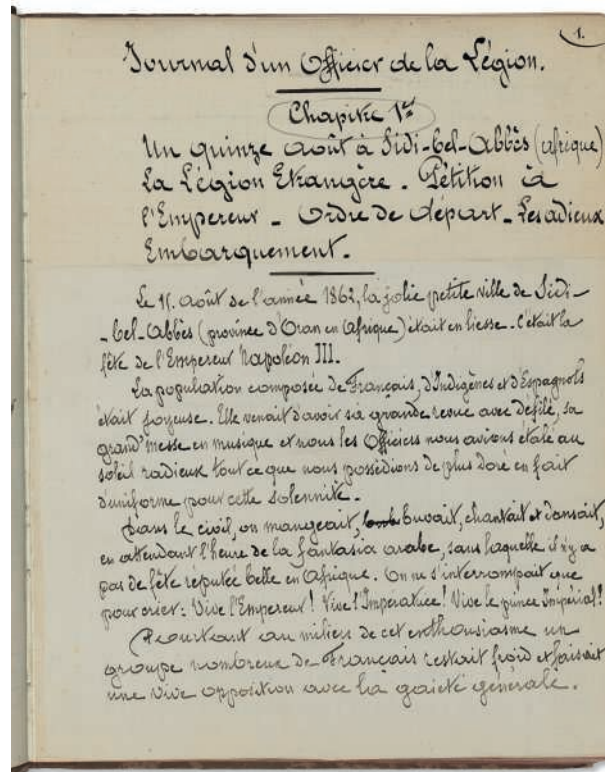 1.
Journal d'un Officier de la Légion.
Chapitre 1er
Un quinze août à Sidi-bel-Abbès (afrique)
La Légion Etrangère. Pétition à
l'Empereur - Ordre de départ - Les adieux
Embarquement.
Le 15 août de l'année 1862, la jolie petite ville de Sidi-
-bel-Abbès (province d'Oran en Afrique) était en liesse. C'était la
fête de l'Empereur Napoléon III.
La population composée de Français, d'Indigènes et d'Espagnols
était joyeuse. Elle venait d'avoir sa grande revue avec défilé, sa
grand'messe en musique et nous les Officiers nous avions étalé au
soleil radieux tout ce que nous possédions de plus doré en fait
d'uniforme pour cette solennité.
Dans le civil, on mangeait, buvait, chantait et dansait,
en attendant l'heure de la fantasia arabe, sans laquelle il n'y a
pas de fête réputée belle en Afrique. On ne s'interrompait que
pour crier : Vive l'Empereur ! Vive l'Impératrice ! Vive le prince Impérial !
Pourtant au milieu de cet enthousiasme un
groupe nombreux de Français restait froid et faisait
une vive opposition avec la gaieté générale.